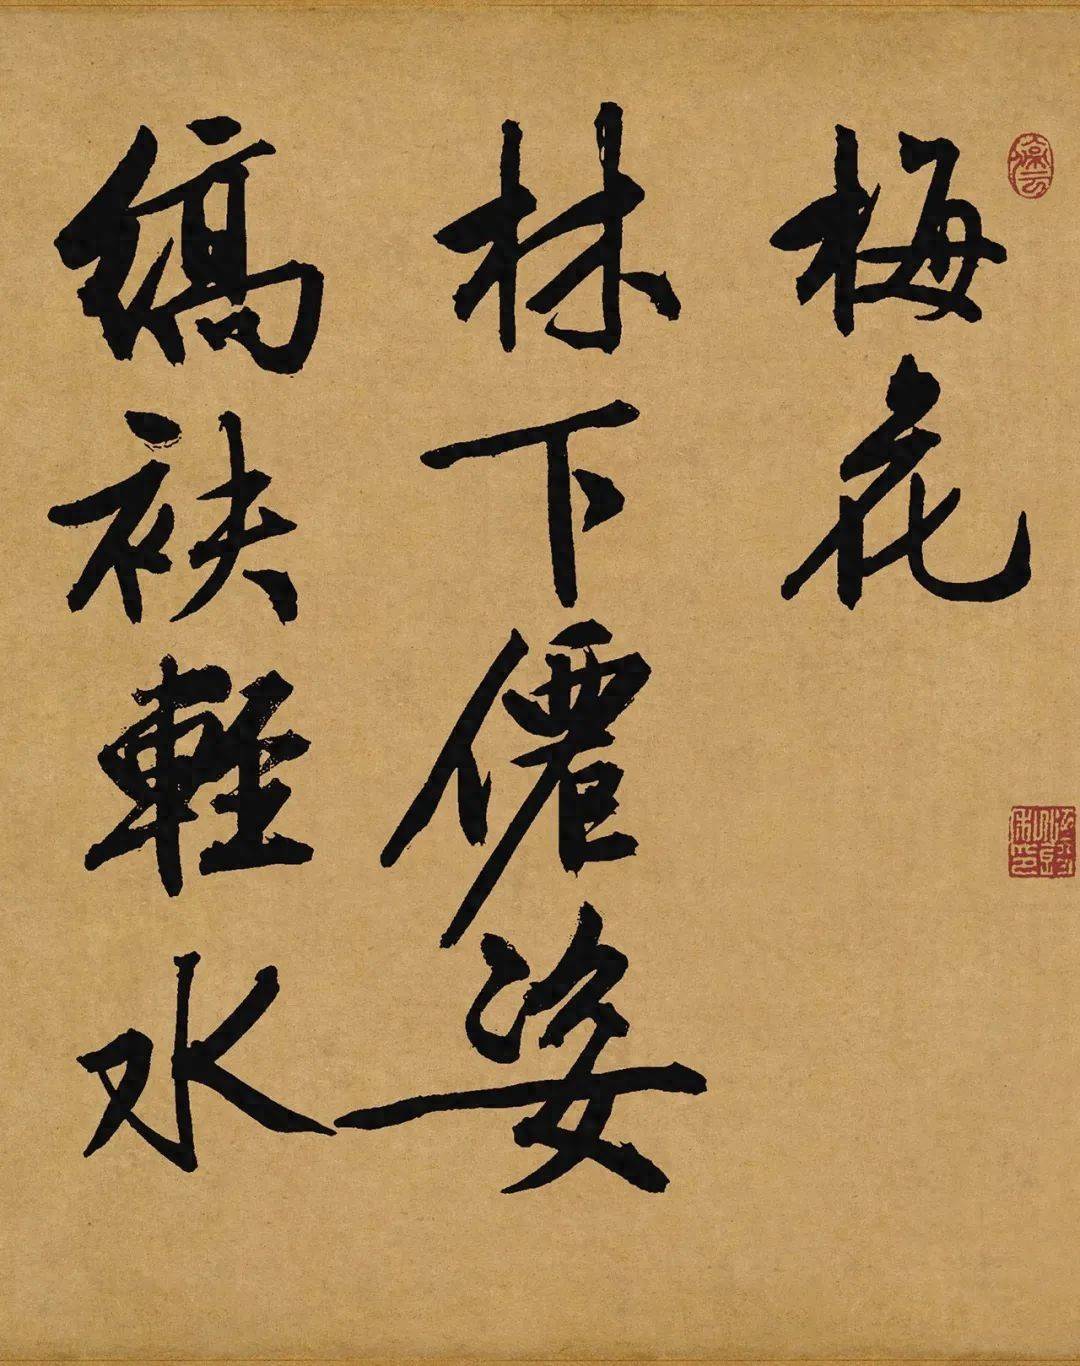 梅花
林下僊姿
縞袂輕水